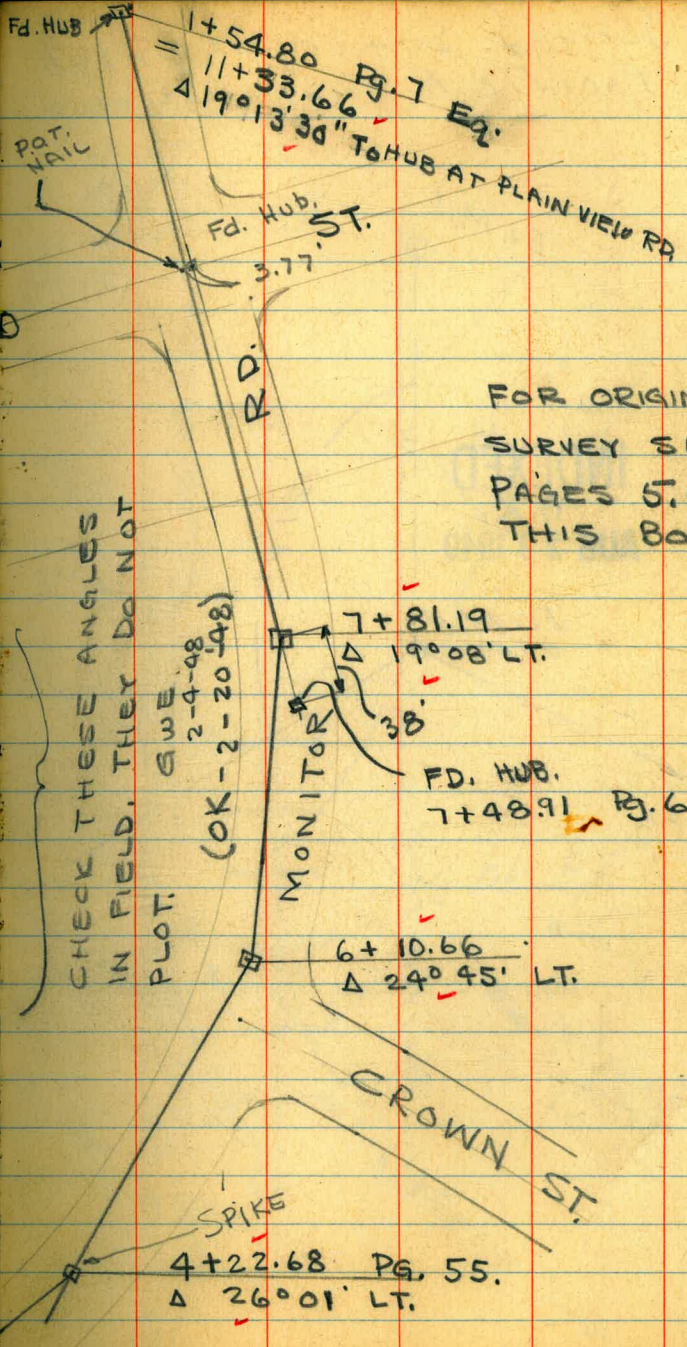 Fd. HUB
1+54.80 Pg. 7 Eq.
= 11+33.66
Δ 19°13'30" To HUB AT PLAIN VIEW RD.
P.O.T.
NAIL
Fd. Hub.
ST.
3.77'
RD.
FOR ORIGIN
SURVEY S
PAGES 5.
THIS BO
CHECK THESE ANGLES
IN FIELD. THEY DO NOT
PLOT. GWE
2-4-48
(OK-2-20-48)
7+81.19
Δ 19°08' LT.
38'
FD. HUB.
7+48.91 Pg. 6
MONITOR
6+10.66
Δ 24°45' LT.
CROWN ST.
SPIKE
4+22.68 PG. 55.
Δ 26°01' LT.